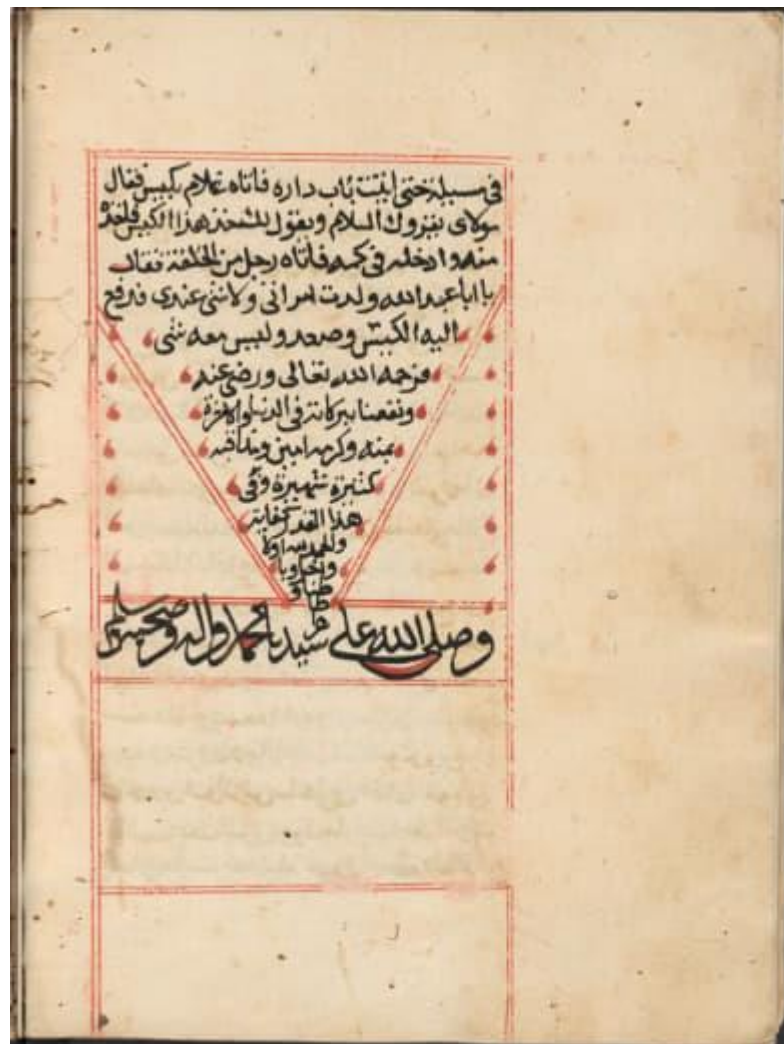 فى سبيله حتى اتيت باب داره فاتاه غلام بكيس فقال
مولاى يقروك السلام ويقول لك خذ هذا الكيس فاخذه
منه وادخله فى كمه فاتاه رجل من الحلقة فقال
يا ابا عبد الله ولدت امراتى ولا شئ عندى فدفع
اليه الكيس وصعد وليس معه شئ
فرحمه الله تعالى ورضى عنه
ونفعنا ببركاته فى الدنيا والاخرة
بمنه وكرمه امين ومناقبه
كثيرة شهيرة وفى
هذا القدر كفاية
والحمد لله اولا
واخرا وبا
طنا و
ظا
هر
وصلى الله على سيدنا محمد واله وصحبه وسلم